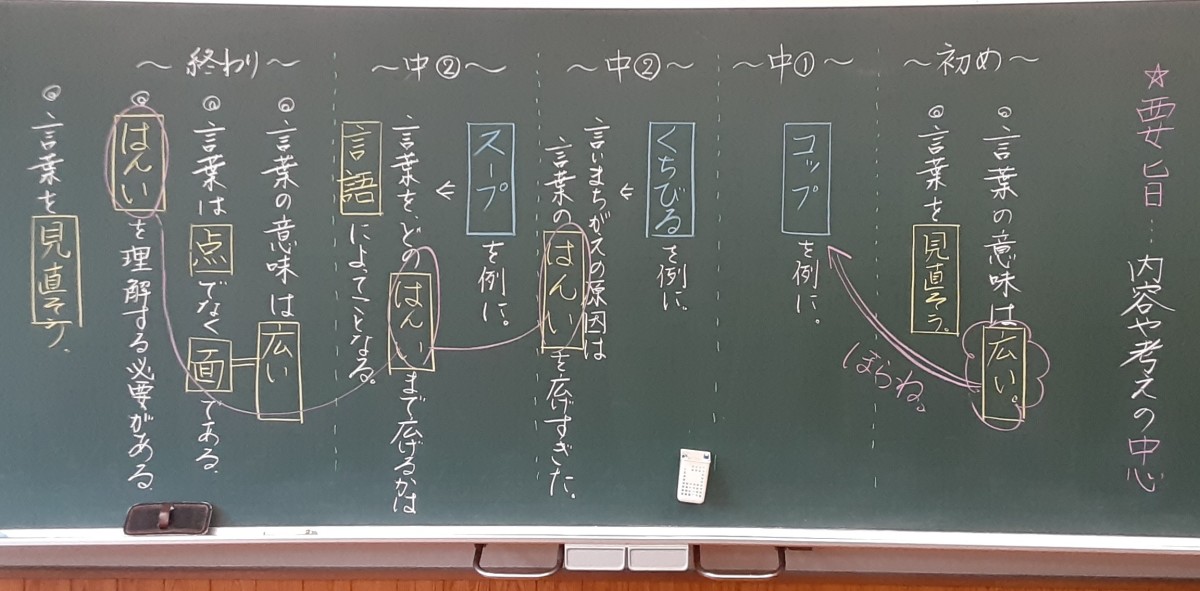 ☆要旨…内容や考えの中心
～初め～
◎言葉の意味は広い。
◎言葉を見直そう。
ほらね。
～中①～
コップを例に。
～中②～
くちびるを例に。
↓
言いまちがスの原因は
言葉のはんいを広げすぎた。
～中②～
スープを例に。
↓
言葉を、どのはんいまで広げるかは
言語によってことなる。
～終わり～
◎言葉の意味は広い
◎言葉は点でなく面である。
◎はんいを理解する必要がある。
◎言葉を見直そう。